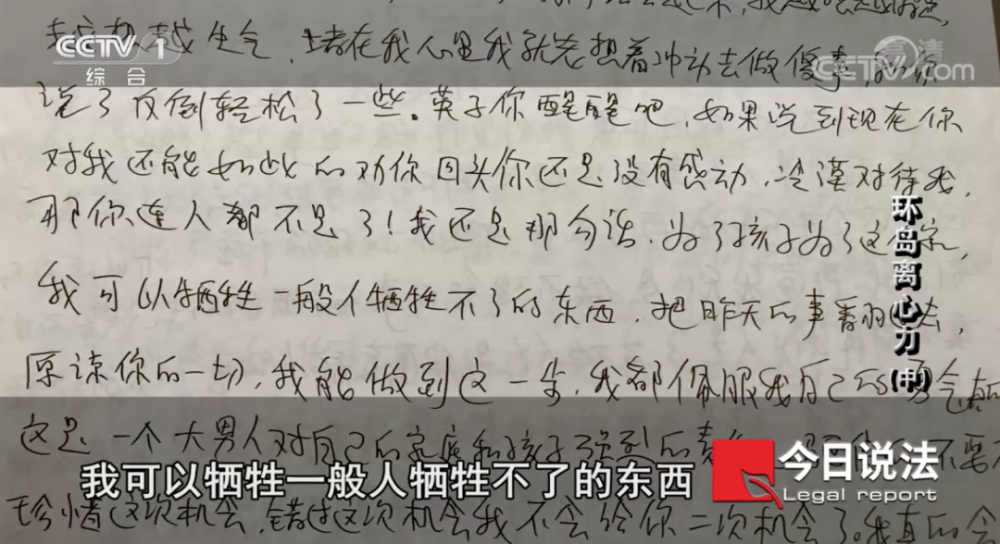 我越想越
越生气，堵在我心里我就老想着冲动去做傻事，
说了反倒轻松了一些。英子你醒醒吧，如果说到现在你
对我还能如此的劝你回头你还是没有感动，冷漠对待我，
那你连人都不是了！我还是那句话，为了孩子为了这个家，
我可以牺牲一般人牺牲不了的东西，把昨天的事翻过去，
原谅你的一切，我能做到这一步，我都佩服我自己的勇气
这是一个大男人对自己的家庭和孩子强烈的责 不要不
珍惜这次机会，错过这次机会我不会给你二次机会了。我真的会
CCTV 1
综合
高清
CCTV.com
环岛离心力(中)
我可以牺牲一般人牺牲不了的东西
今日说法
Legal report